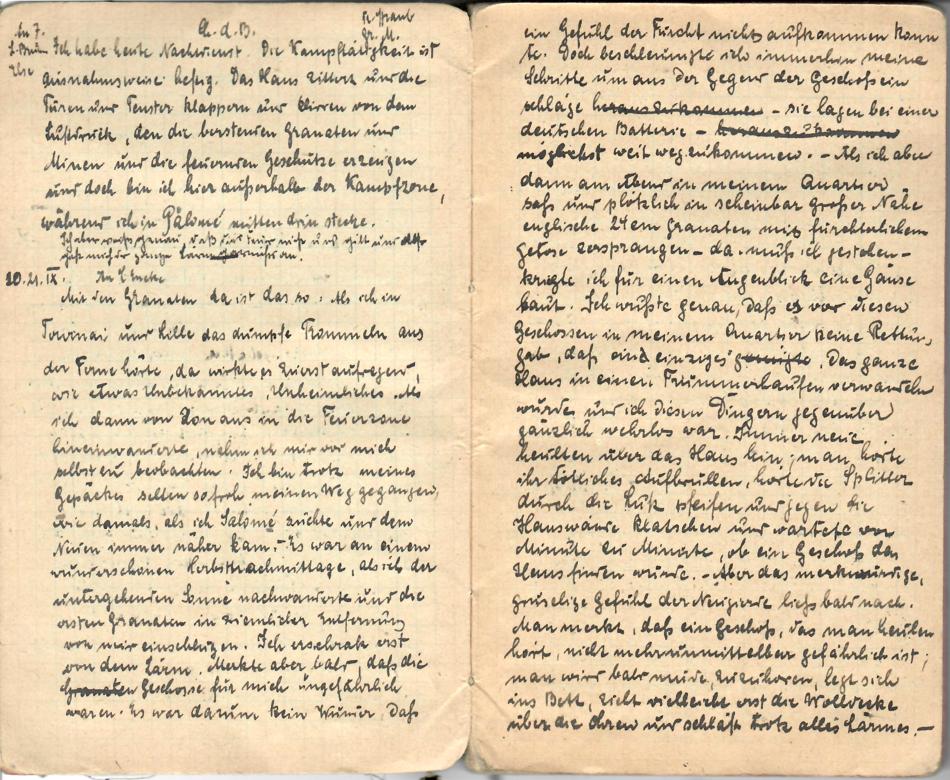 An 7.
Ch. d. B.
Fr. Straub
Gr. M.
Else
Ich habe heute Nachtdienst. Die Kampftätigkeit ist
ausnahmsweise heftig. Das Haus zittert und die
Türen und Fenster klappern und klirren von dem
Luftdruck, den die berstenden Granaten und
Minen und die feuernden Geschütze erzeugen
und doch bin ich hier außerhalb der Kampfzone,
während ich in Salomé mitten drin stecke.
Ich aber weiß genau, daß
20.21.IX. An
Mit den Granaten da ist das so: Als ich in
Tournai und Lille das dumpfe Trommeln aus
der Ferne hörte, da wirkte es zuerst aufregend,
wie etwas Unbekanntes, Unheimliches. Als
ich dann von Don aus in die Feuerzone
hineinwanderte, nahm ich mir vor mich
selbst zu beobachten. Ich bin trotz meines
Gepäckes selten so froh meinen Weg gegangen,
wie damals, als ich Salomé suchte und dem
Neuen immer näher kam. – Es war an einem
wunderschönen Herbstnachmittage, als ich der
untergehenden Sonne nachwanderte und die
ersten Granaten in ziemlicher Entfernung
von mir einschlugen. Ich erschrak erst
von dem Lärm. Merkte aber bald, daß die
Granaten Geschosse für mich ungefährlich
waren. Es war darum kein Wunder, daß
ein Gefühl der Furcht nicht aufkommen konn
te. Doch beschleunigte ich immerhin meine
Schritte um aus der Gegend der Geschoßein
schläge herauszukommen – sie lagen bei einer
deutschen Batterie – herauszukommen
möglichst weit wegzukommen. – Als ich aber
dann am Abend in meinem Quartier
saß und plötzlich in scheinbar großer Nähe
englische 24cm Granaten mit fürchterlichem
Getöse zersprangen – da muß ich gestehen –
kriegte ich für einen Augenblick eine Gänse
haut. Ich wußte genau, daß es vor diesen
Geschossen in meinem Quartier keine Rettung
gab, daß ein einziges genügte. Das ganze
Haus in einen Trümmerhaufen verwandeln
würde, und ich diesen Dingern gegenüber
gänzlich wehrlos war. Immer neue
heulten über das Haus hin; man hörte
ihr tötliches Aufbrüllen, hörte die Splitter
durch die Luft pfeifen und gegen die
Hauswände klatschen und wartete von
Minute zu Minute, ob ein Geschoß das
Haus finden würde. – Aber das merkwürdige,
gruselige Gefühl der Neugierde ließ bald nach.
Man merkt, daß ein Geschoß, das man heulen
hört, nicht mehr unmittelbar gefährlich ist;
man wird bald müde, zuzuhören, legt sich
ins Bett, zieht vielleicht erst die Wolldecke
über die Ohren und schläft trotz alles Lärmes. –